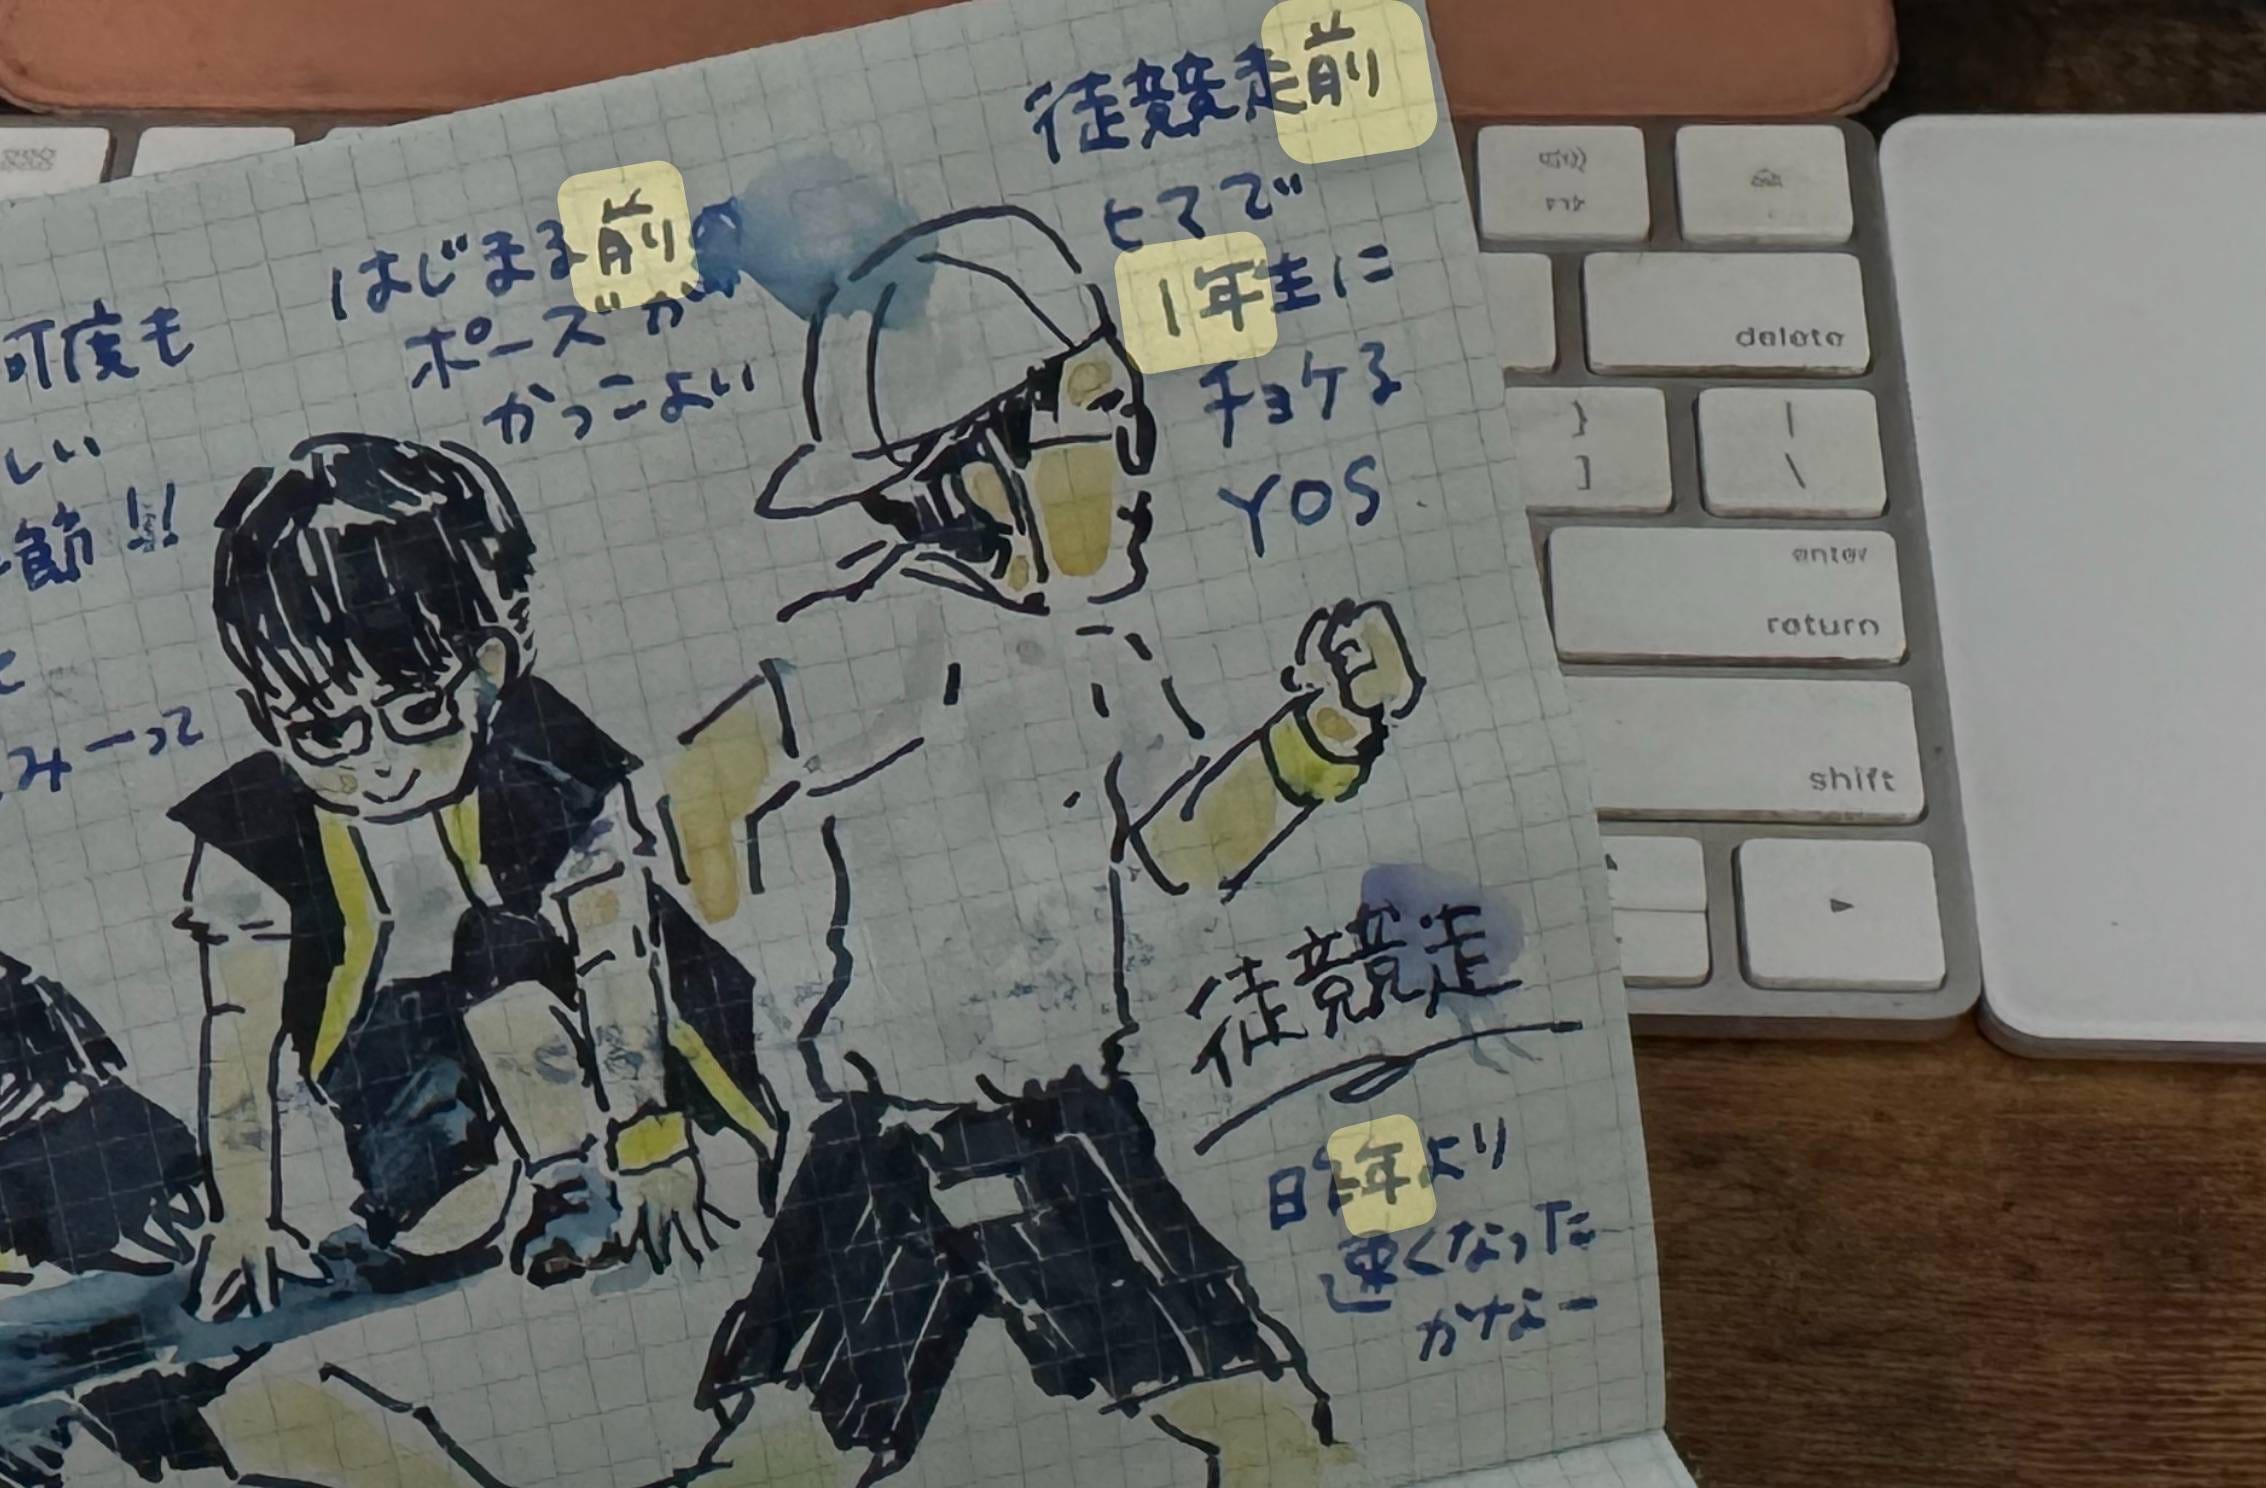 徒競走前
ヒマで
1年生に
チョケる
YOS
はじまる前の
ポーズが
かっこよい
何度も
しい
節!!
みーって
徒競走
昨年より
速くなった
かなー
delete
}
]
|
\
enter
return
shift